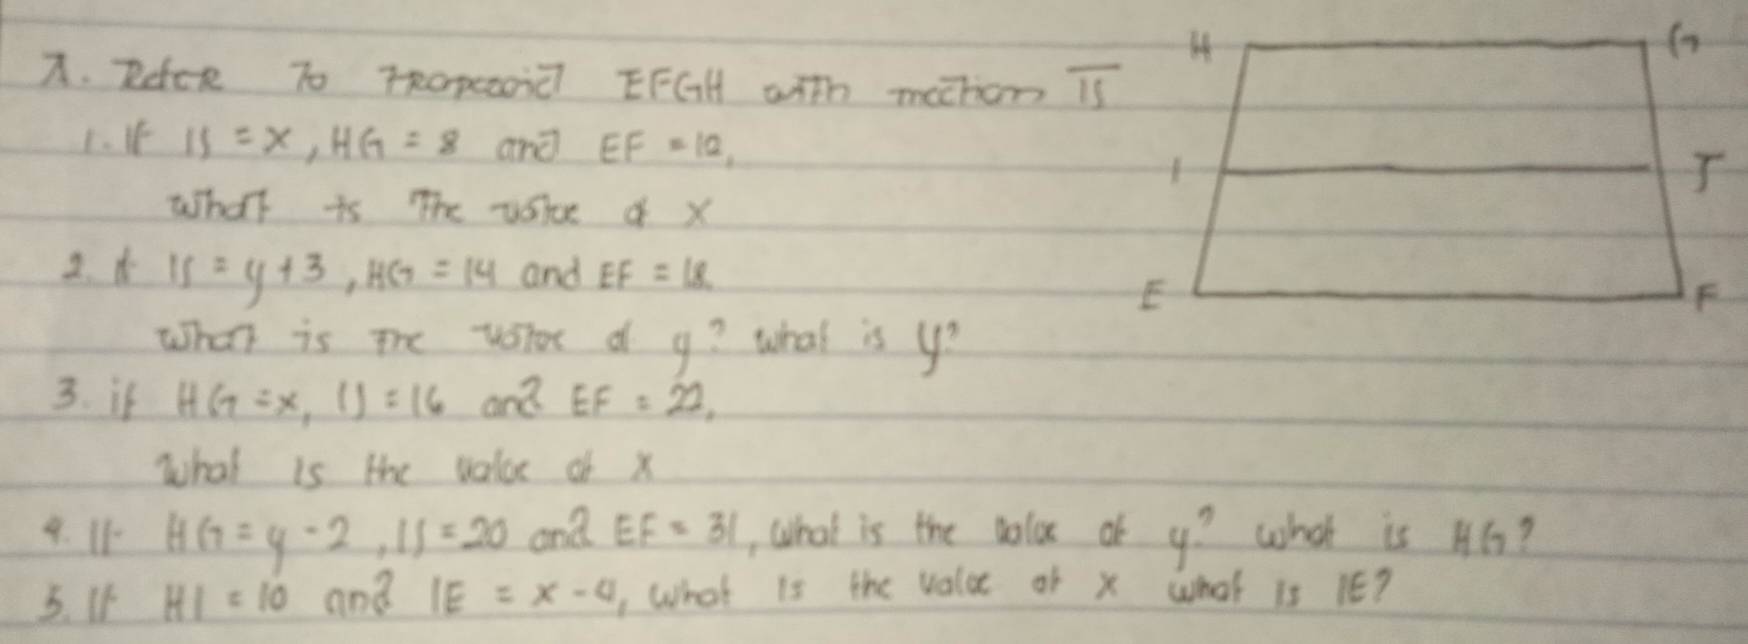 A. Refer To Trapezoid EFGH with median IJ
1. If IJ = x, HG = 8 and EF = 12,
What is The value of x
2. If IJ = y + 3, HG = 14 and EF = 18
What is The value of y? what is y?
3. if HG = x, IJ = 16 and EF = 22,
What is the value of x
4. If HG = y - 2, IJ = 20 and EF = 31, what is the value of y? what is HG?
5. If HI = 10 and IE = x - 4, what is the value of x what is IE?
H G
I J
E F